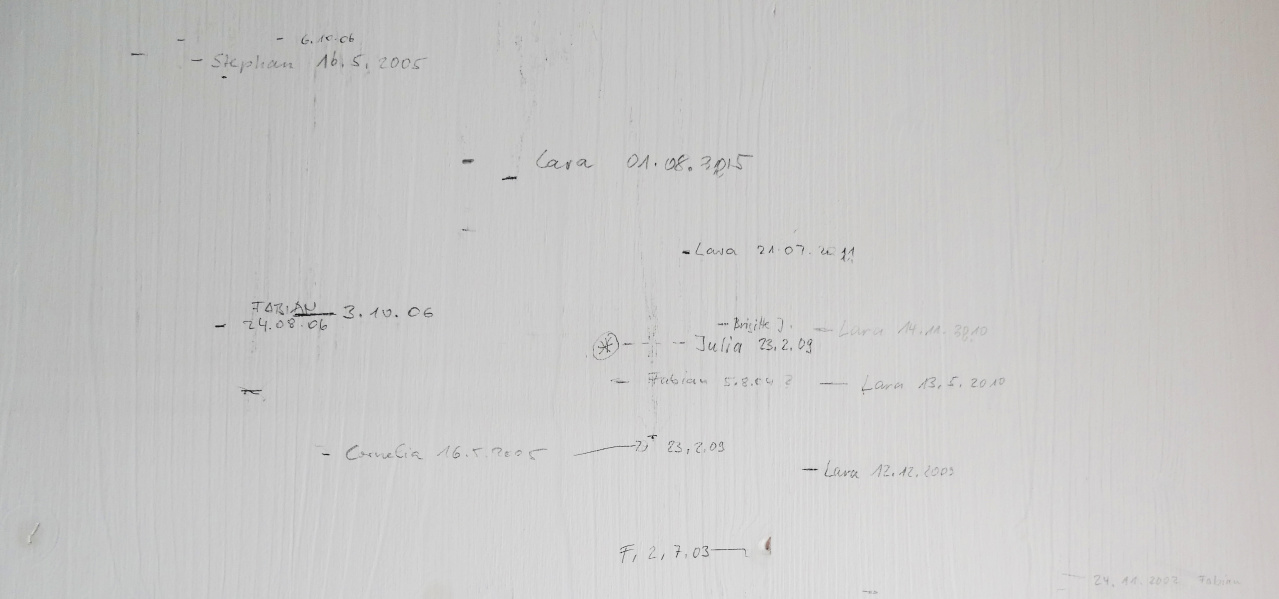 6.10.06
Stephan 16.5.2005
Lara 01.08.2015
Lara 21.07.2011
FABIAN 3.10.06
24.08.06
Brigitte J.
Lara 14.11.2010
Julia 23.2.09
Fabian 5.8.04
Lara 13.5.2010
Cornelia 16.5.2005
23,2.09
Lara 12.12.2009
F, 2,7.03
24.11.2002 Fabian